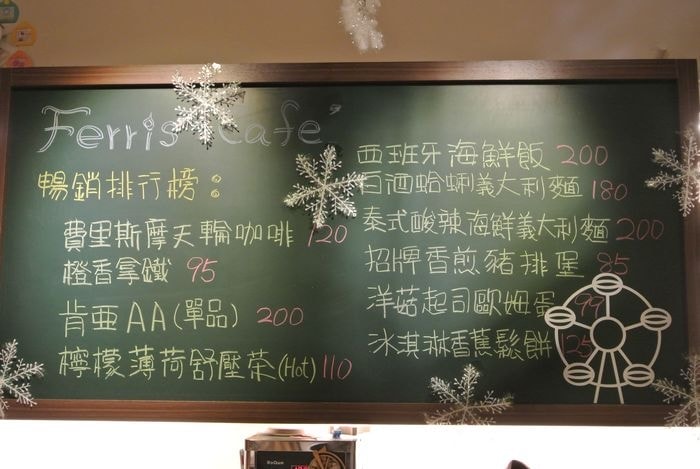 Ferris Cafe'
暢銷排行榜：
費里斯摩天輪咖啡 120
橙香拿鐵 95
肯亜AA(單品) 200
檸檬薄荷舒壓茶(Hot) 110
西班牙海鮮飯 200
白酒蛤蜊義大利麵 180
泰式酸辣海鮮義大利麵 200
招牌香煎豬排堡 85
洋菇起司歐姆蛋 99
冰淇淋香蕉鬆餅 125